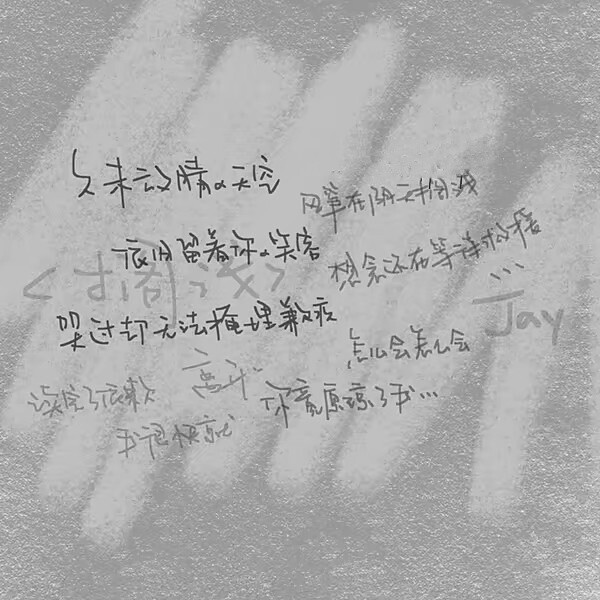 久未放晴の天空
风筝在阴天搁浅
依旧留着你の笑容
想念还在等待救援
<搁浅>
...
—Jay
哭过却无法掩埋歉疚
怎么会怎么会
你竟原谅了我...
读完了依赖
我很快就
离开